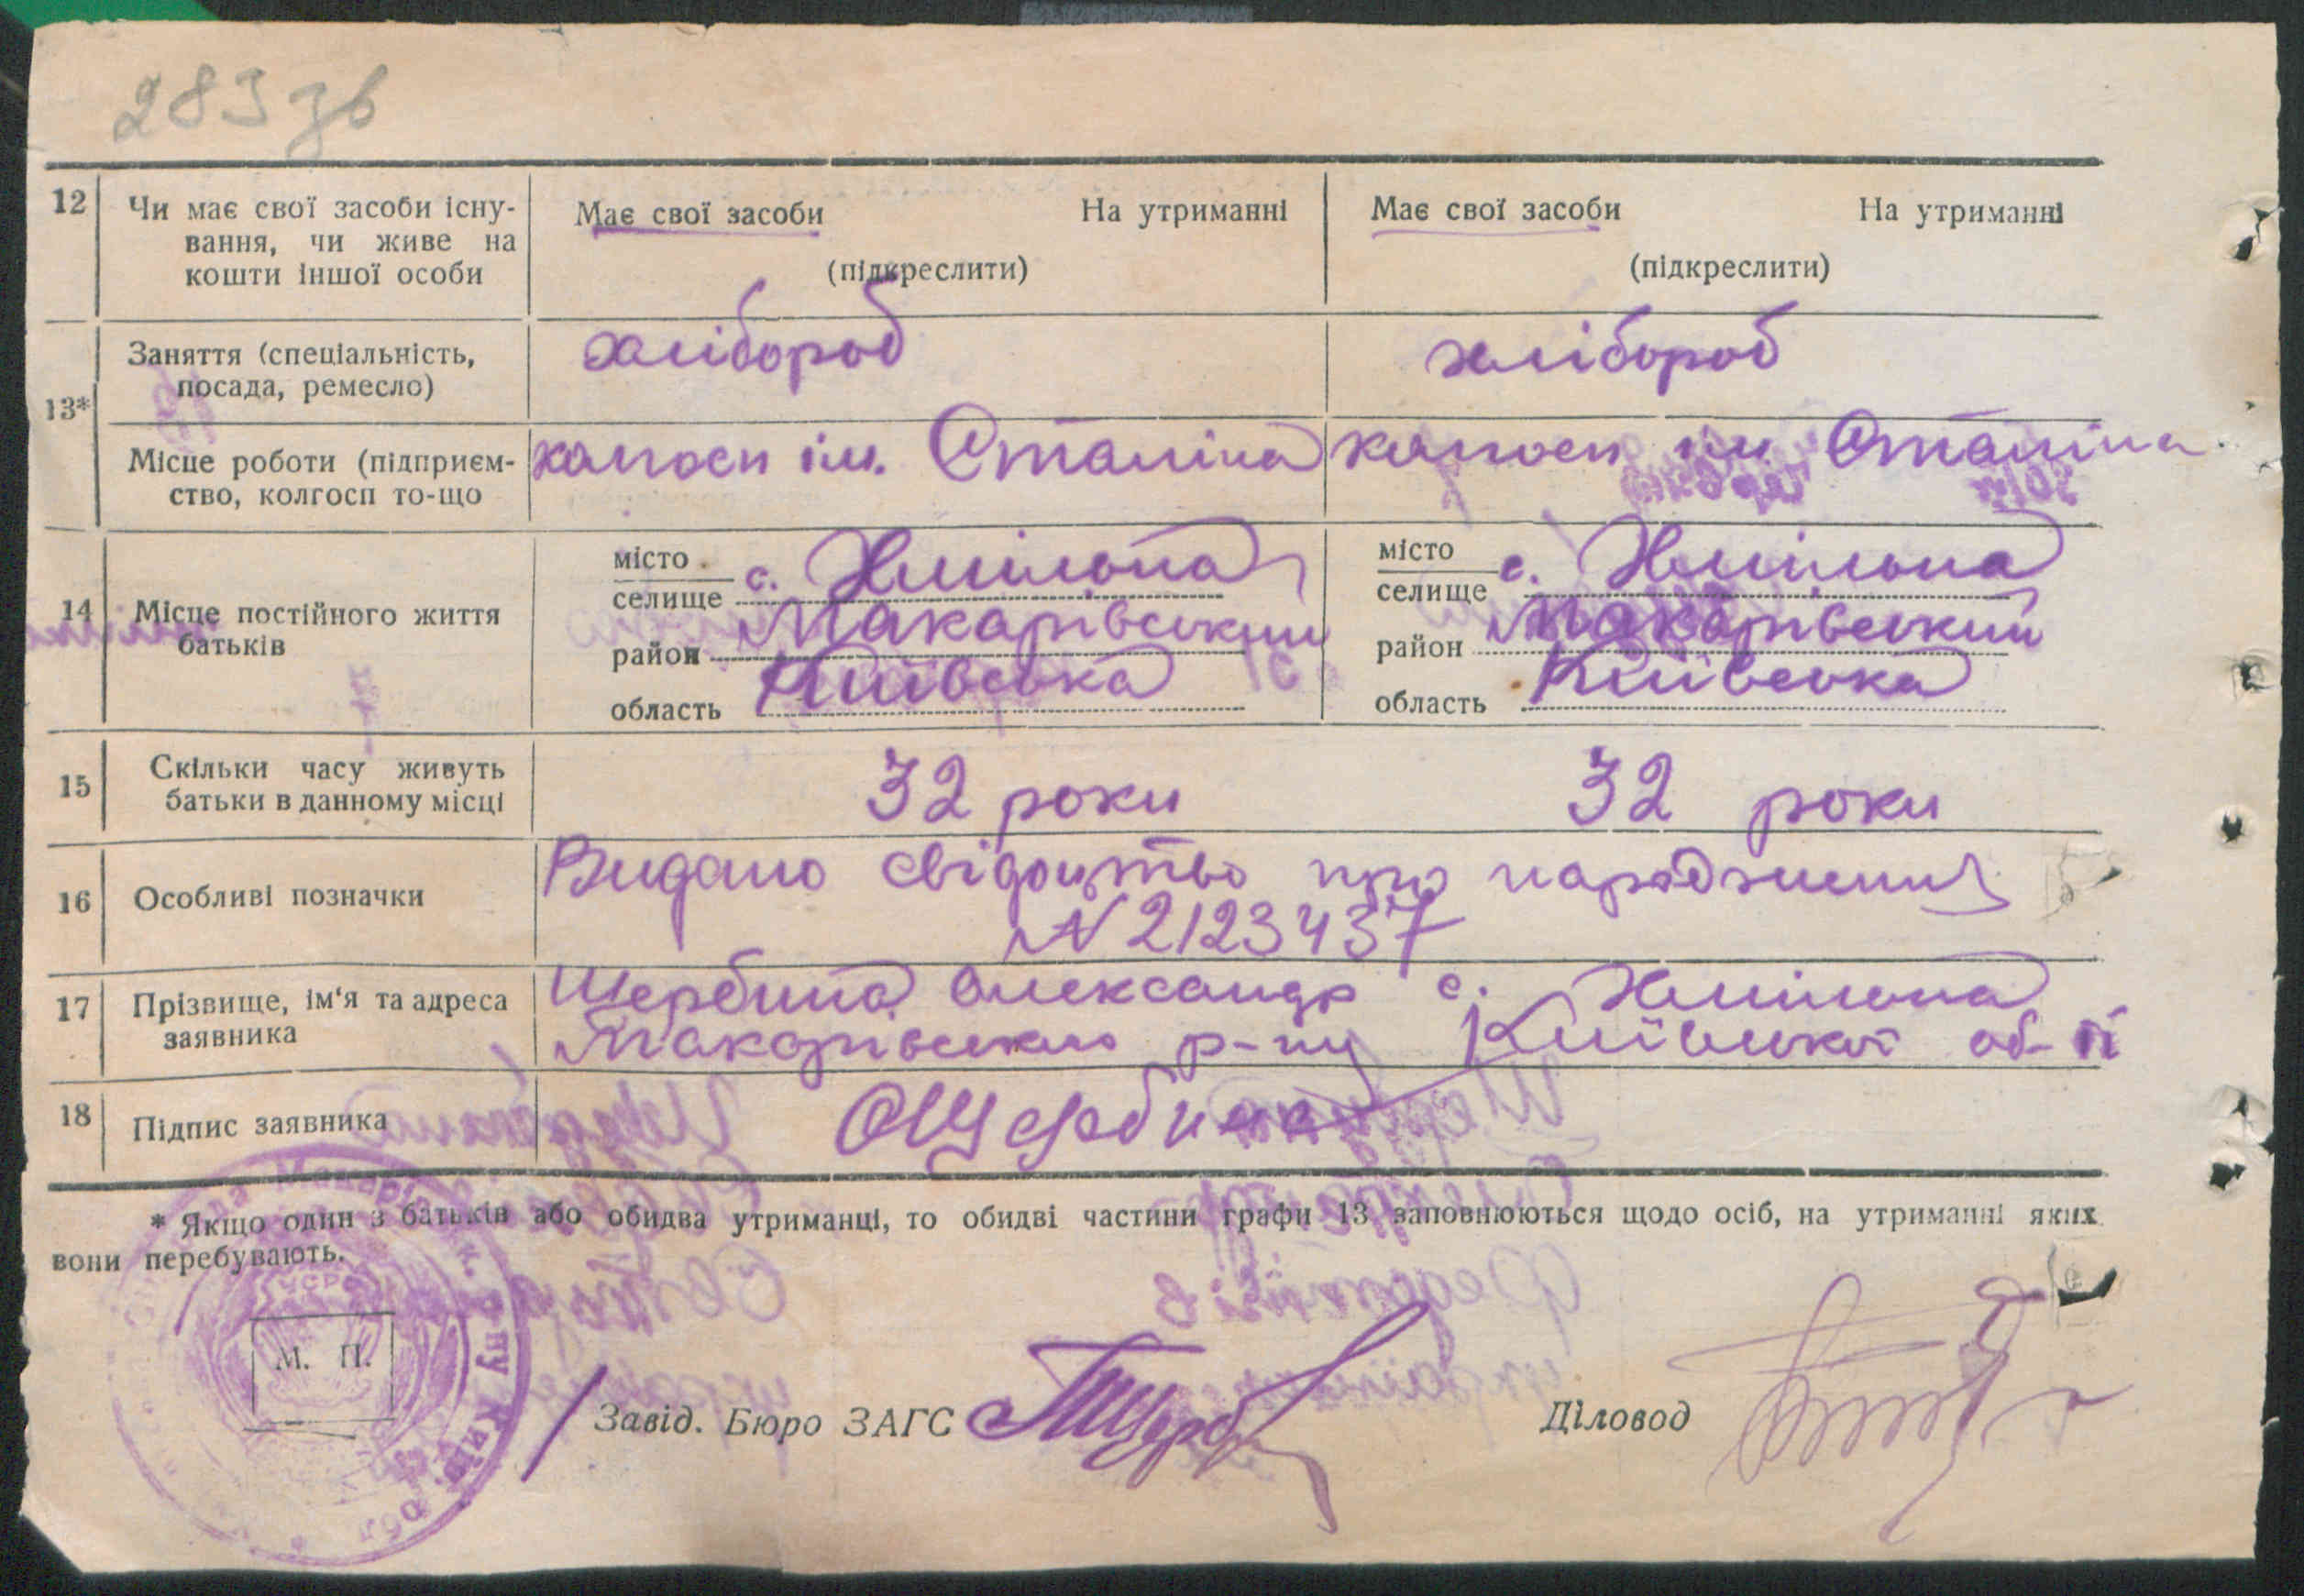 283 зв
12 Чи має свої засоби існу- Має свої засоби На утриманні Має свої засоби На утриманні
вання, чи живе на
кошти іншої особи (підкреслити) (підкреслити)
13* Заняття (спеціальність, хлібороб хлібороб
посада, ремесло)
Місце роботи (підприєм- колгосп ім. Сталіна колгосп ім Сталіна
ство, колгосп то-що
14 Місце постійного життя
батьків
місто с. Хмільна місто с. Хмільна
селище селище
район Макарівський район Макарівський
область Київська область Київська
15 Скільки часу живуть 32 роки 32 роки
батьки в данному місці
16 Особливі позначки Видано свідоцтво про народження
N 2123437
17 Прізвище, ім'я та адреса Щербина Олександр с. Хмільна
заявника Макарівського р-ну Київської об-ті
18 Підпис заявника ОЩербина
* Якщо один з батьків або обидва утриманці, то обидві частини графи 13 заповнюються щодо осіб, на утриманні яких
вони перебувають.
М. П.
Завід. Бюро ЗАГС Діловод